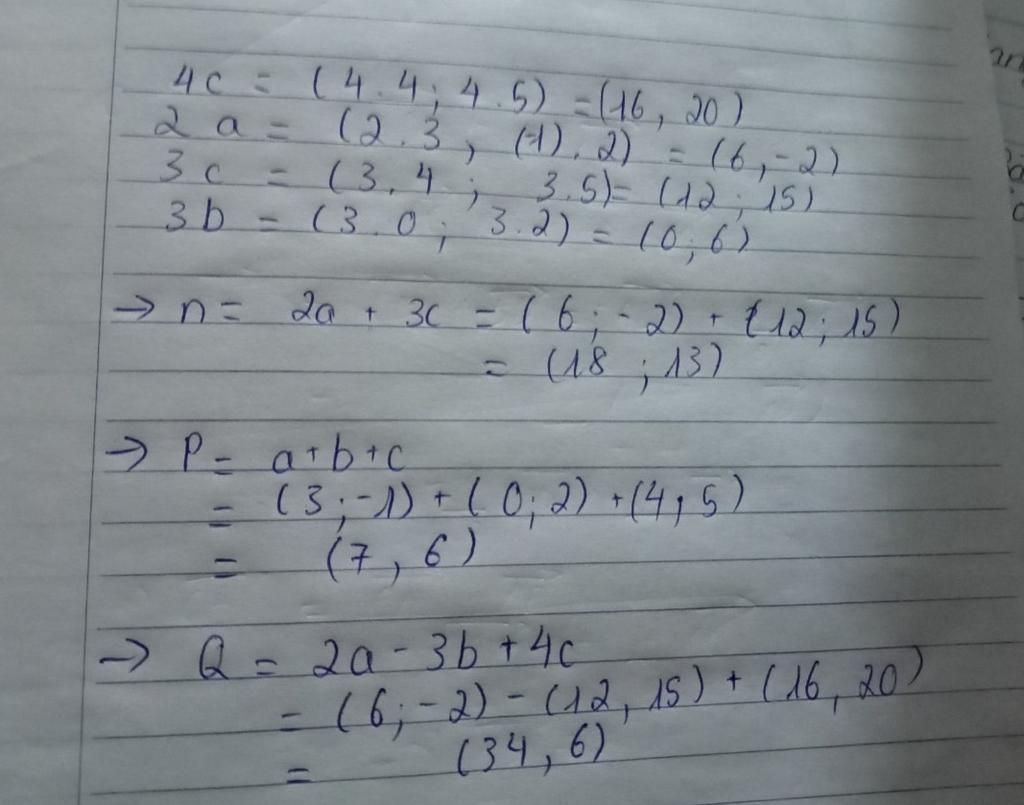 4c = (4.4; 4.5) = (16, 20)
2 a = (2.3, (-1).2) = (6,-2)
3c = (3.4; 3.5) = (12; 15)
3b = (3.0; 3.2) = (0; 6)
→ n = 2a + 3c = (6; -2) + (12; 15)
= (18; 13)
→ P = a+b+c
= (3;-1) + (0; 2) + (4, 5)
= (7, 6)
→ Q = 2a - 3b + 4c
= (6; -2) - (12, 15) + (16, 20)
= (34, 6)